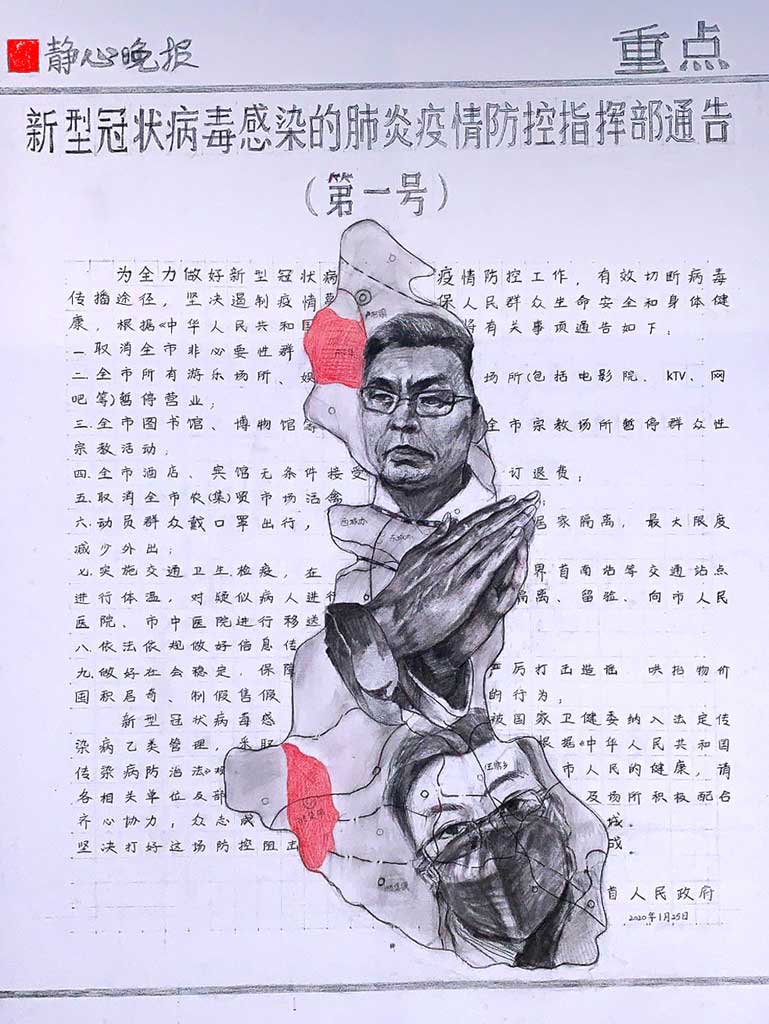 静心晚报
重点
新型冠状病毒感染的肺炎疫情防控指挥部通告
（第一号）
为全力做好新型冠状病 疫情防控工作，有效切断病毒
传播途径，坚决遏制疫情蔓 保人民群众生命安全和身体健
康，根据《中华人民共和国 将有关事项通告如下：
一.取消全市非必要性群
二.全市所有游乐场所、娱 场所(包括电影院、KTV、网
吧等)暂停营业；
三.全市图书馆、博物馆等 全市宗教场所暂停群众性
宗教活动；
四.全市酒店、宾馆无条件接受 订退费；
五.取消全市农(集)贸市场活禽
六.动员群众戴口罩出行， 居家隔离，最大限度
减少外出；
七.实施交通卫生检疫，在 界首南站等交通站点
进行体温，对疑似病人进行 隔离、留验、向市人民
医院、市中医院进行移送
八.依法依规做好信息传
九.做好社会稳定，保障 严厉打击造谣 哄抬物价
囤积居奇、制假售假 的行为；
新型冠状病毒感 被国家卫健委纳入法定传
染病乙类管理，采取 根据《中华人民共和国
传染病防治法》规 市人民的健康，请
各相关单位及部 及场所积极配合
齐心协力，众志成 城。
坚决打好这场防控阻击 战。
西城办
东城办
首人民政府
2020年1月25日